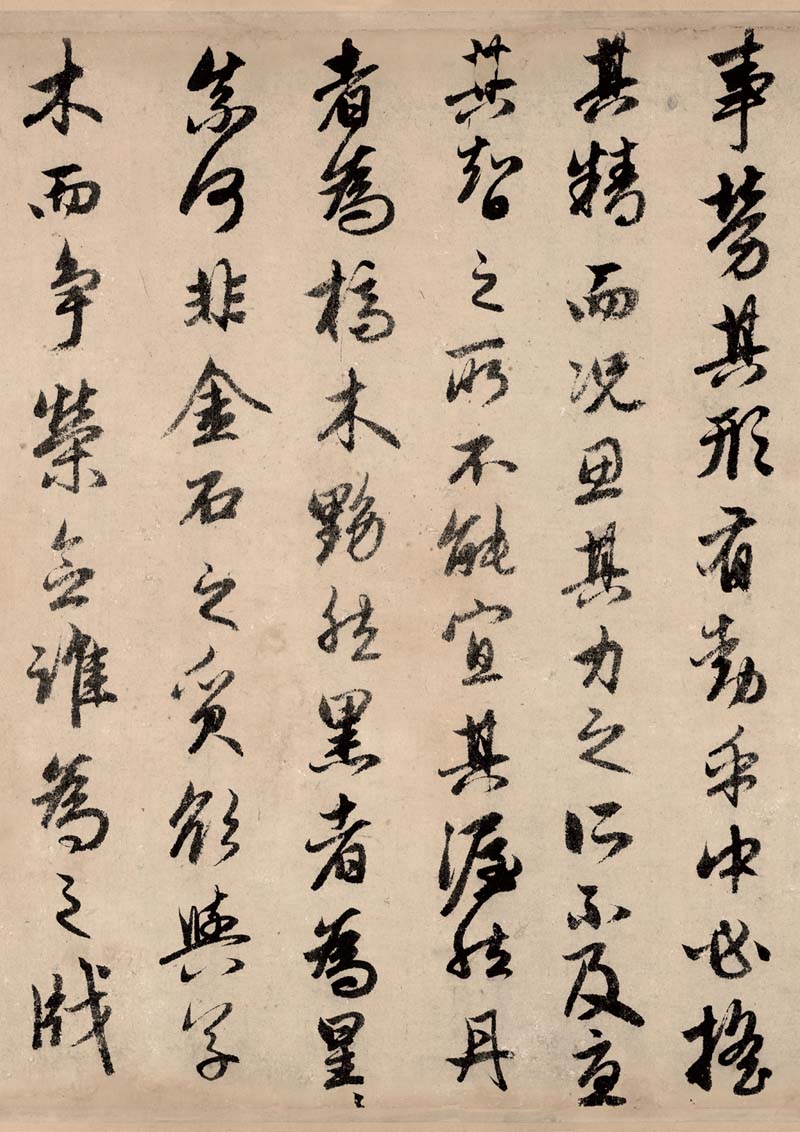 事勞其形有動乎中必搖
其精而況思其力之所不及憂
其智之所不能宜其渥然丹
者為槁木黟然黑者為星〻
奈何非金石之質欲與草
木而爭榮念誰為之戕